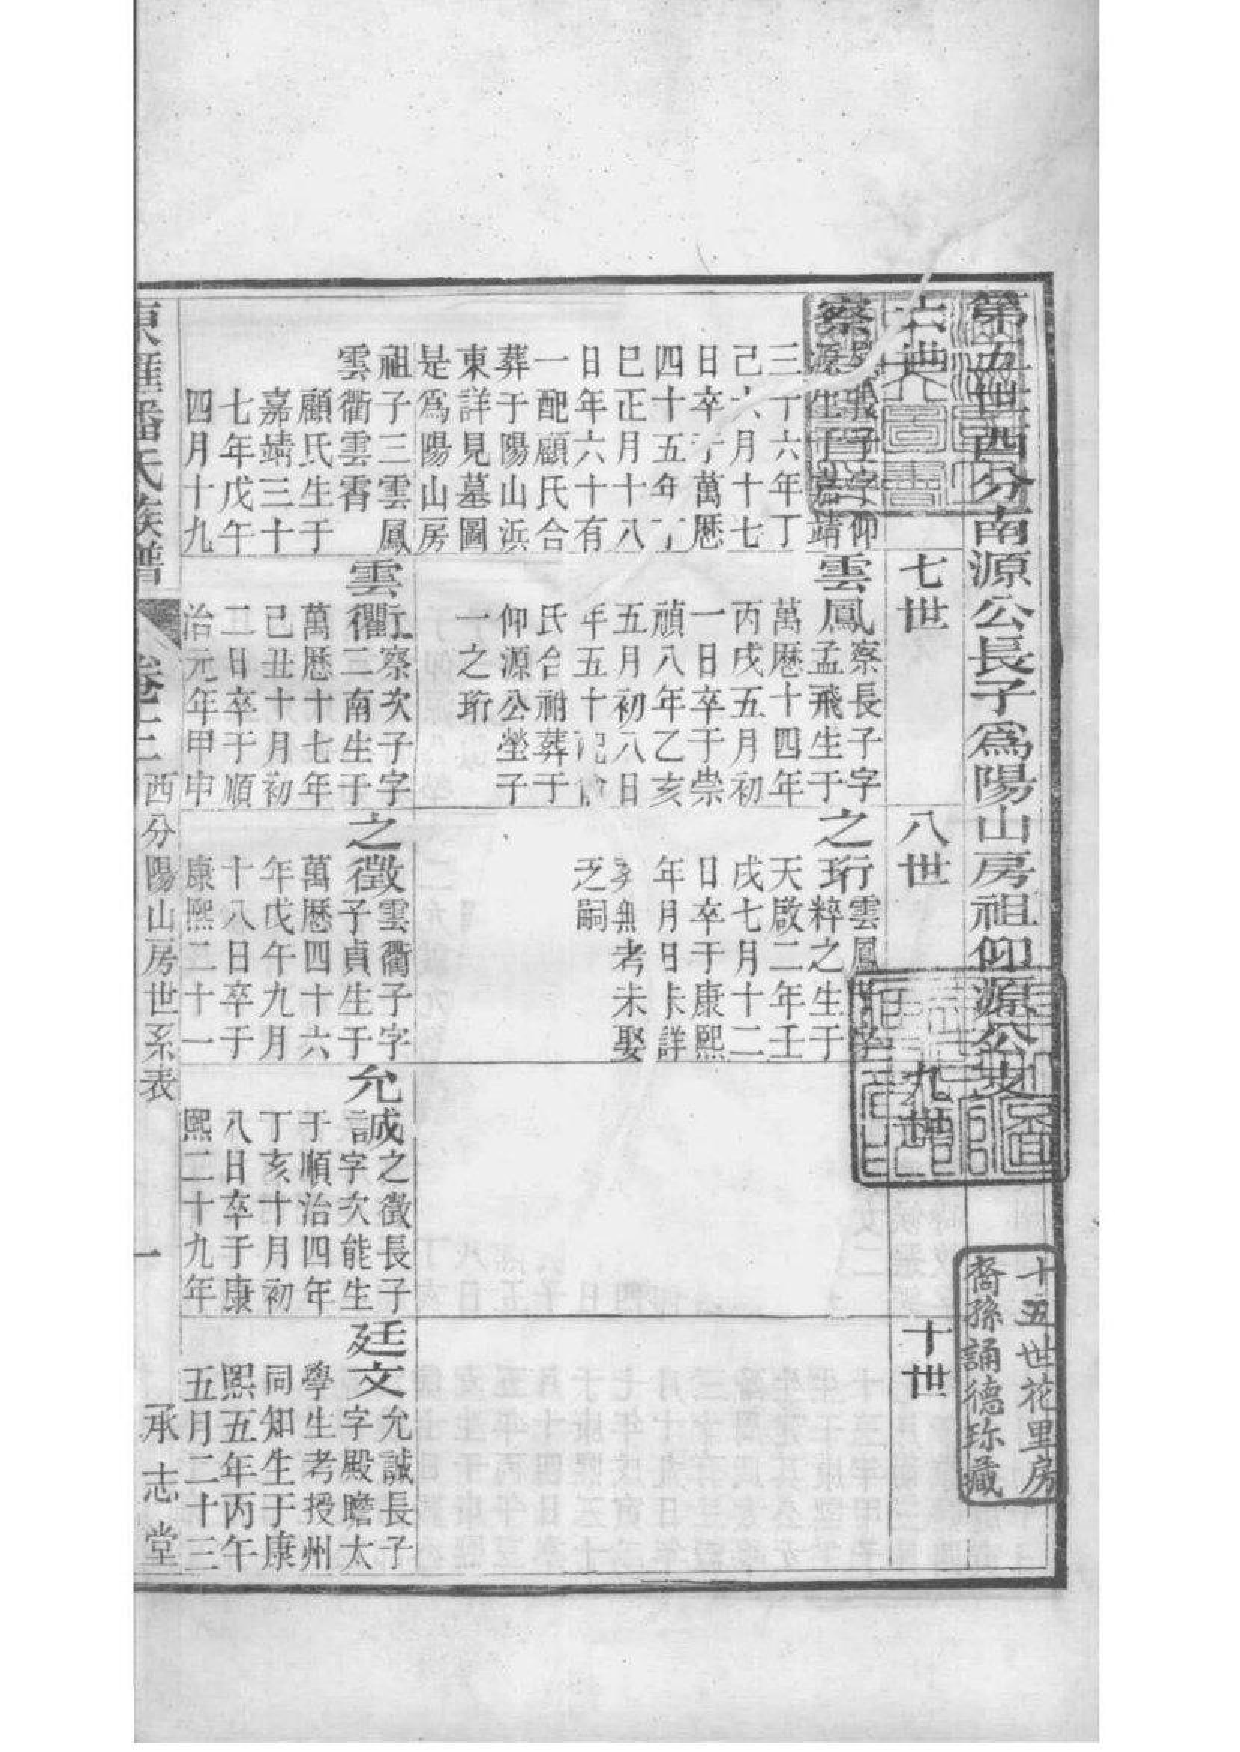 第五世西分南源公長子為陽山房祖仰源公支
六世
七世
八世
九世
十世
察
子字仰
源生于嘉靖
三十六年丁
己六月十七
日卒于萬曆
四十五年丁
巳正月十八
日年六十有
一配顧氏合
葬于陽山浜
東詳見墓圖
是爲陽山房
祖子三雲鳳
雲衢雲霄
顧氏生于
嘉靖三十
七年戊午
四月十九
雲鳳
察長子字
孟飛生于
萬曆十四年
丙戌五月初
一日卒于崇
禎八年乙亥
五月初八日
年五十配
氏合祔葬于
仰源公塋子
一之珩
雲衢
察次子字
二南生于
萬曆十七年
己丑十月初
二日卒于順
治元年甲申
之珩
雲鳳子字
粹之生于
天啟二年壬
戌七月十二
日卒于康熙
年月日未詳
無考未娶
乏嗣
之徵
雲衢子字
子貞生于
萬曆四十六
年戊午九月
十八日卒于
康熙二十一
允誠
之徵長子
字次能生
于順治四年
丁亥十月初
八日卒于康
熙二十九年
廷文
允誠長子
字殿瞻太
學生考授州
同知生于康
熙五年丙午
五月二十三
東匯潘氏族譜
卷十二
西分陽山房世系表
一
承志堂
十五世花里房
裔孫誦德珍藏